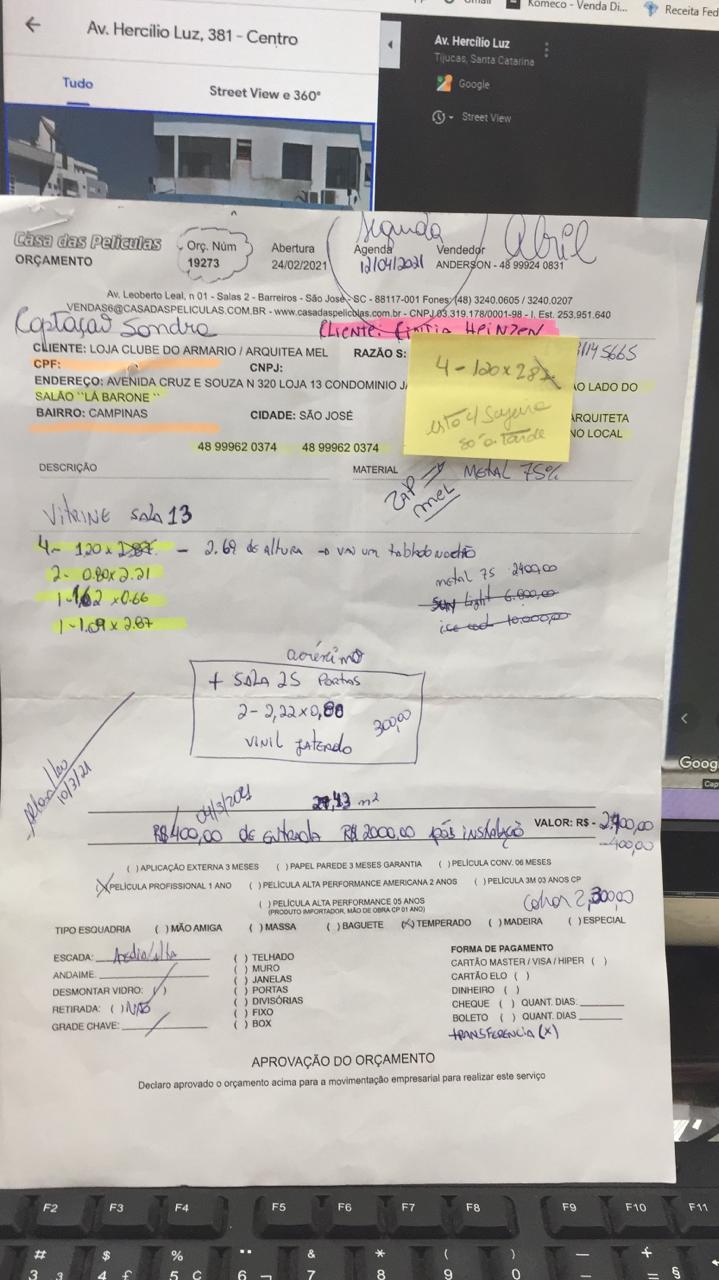 Komeco - Venda Di...
Receita Fed
Av. Hercílio Luz, 381 - Centro
Tudo
Street View e 360°
Av. Hercílio Luz
Tijucas, Santa Catarina
Google
Street View
Casa das Películas
ORÇAMENTO
Orç. Núm
19273
Abertura
24/02/2021
Segunda
Agenda
12/04/2021
Abril
Vendedor
ANDERSON - 48 99924 0831
Av. Leoberto Leal, n 01 - Salas 2 - Barreiros - São José - SC - 88117-001 Fones: (48) 3240.0605 / 3240.0207
VENDAS6@CASADASPELICULAS.COM.BR - www.casadaspeliculas.com.br - CNPJ 03.319.178/0001-98 - I. Est. 253.951.640
Captação Sondra
CLIENTE: CINTIA HEINZEN
CLIENTE: LOJA CLUBE DO ARMARIO / ARQUITEA MEL RAZÃO S: 5665
CPF: CNPJ:
ENDEREÇO: AVENIDA CRUZ E SOUZA N 320 LOJA 13 CONDOMINIO AO LADO DO
SALÃO "LÁ BARONE"
BAIRRO: CAMPINAS CIDADE: SÃO JOSÉ ARQUITETA
NO LOCAL
48 99962 0374 48 99962 0374
4 - 120 x 287
só a tarde
DESCRIÇÃO MATERIAL METAL 75%
ZAP
MEL
VITRINE SALA 13
4 - 120 x 287 - 2.69 de altura → vai um tablado no chão
2 - 0.80 x 2.21
1 - 1.62 x 0.66
1 - 1.09 x 2.87
metal 75 2400,00
Sun Light 6.800,00
10.000,00
acréscimo
+ SALA 25 Portas
2 - 2,22 x 0,80
VINIL JATEADO
300,00
10/3/21
04/3/2021
27,43 m²
R$400,00 de entrada R$2000,00 após instalação VALOR: R$ - 2.400,00
-400,00
( ) APLICAÇÃO EXTERNA 3 MESES ( ) PAPEL PAREDE 3 MESES GARANTIA ( ) PELÍCULA CONV. 06 MESES
(X) PELÍCULA PROFISSIONAL 1 ANO ( ) PELÍCULA ALTA PERFORMANCE AMERICANA 2 ANOS ( ) PELÍCULA 3M 03 ANOS CP
( ) PELÍCULA ALTA PERFORMANCE 05 ANOS
(PRODUTO IMPORTADOR, MÃO DE OBRA CP 01 ANO)
Cobrar 2,300,00
TIPO ESQUADRIA ( ) MÃO AMIGA ( ) MASSA ( ) BAGUETE (X) TEMPERADO ( ) MADEIRA ( ) ESPECIAL
ESCADA:
ANDAIME:
DESMONTAR VIDRO: ( )
RETIRADA: ( ) NÃO
GRADE CHAVE:
( ) TELHADO
( ) MURO
( ) JANELAS
( ) PORTAS
( ) DIVISÓRIAS
( ) FIXO
( ) BOX
FORMA DE PAGAMENTO
CARTÃO MASTER / VISA / HIPER ( )
CARTÃO ELO ( )
DINHEIRO ( )
CHEQUE ( ) QUANT. DIAS:
BOLETO ( ) QUANT. DIAS
TRANSFERENCIA (X)
APROVAÇÃO DO ORÇAMENTO
Declaro aprovado o orçamento acima para a movimentação empresarial para realizar este serviço
Goog
F2 F3 F4 F5 F6 F7 F8 F9 F10 F11
# $ % ¨ & * ( ) _ + 
3 3 4 £ 5 ¢ 6 ¬ 7 8 9 0 - = §